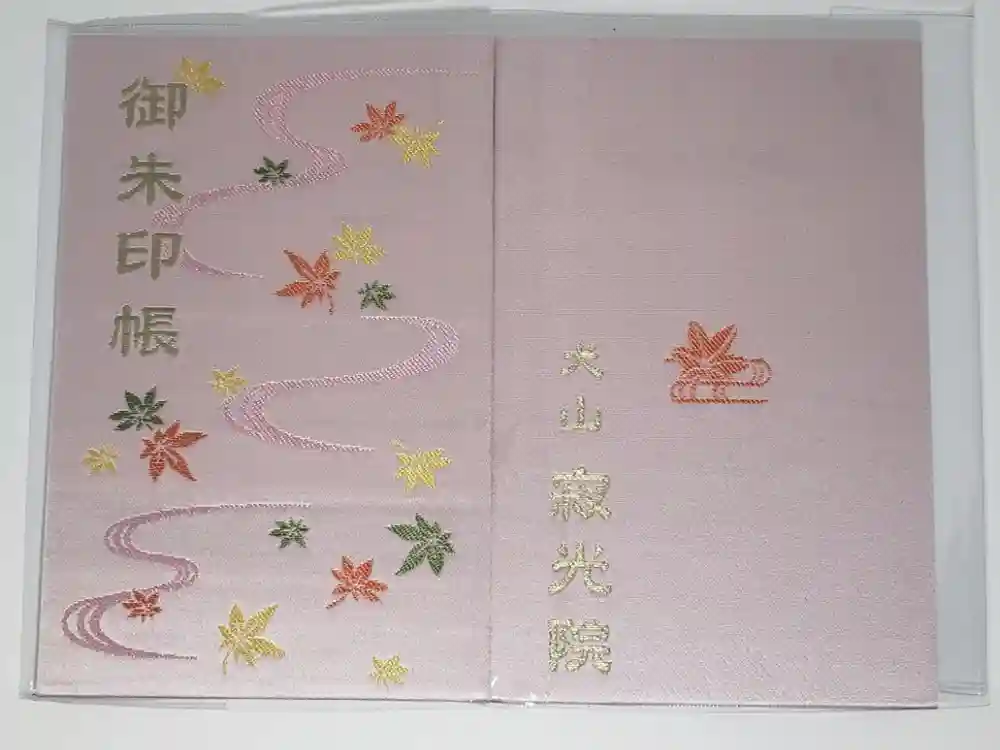 御朱印帳
犬山
寂光院